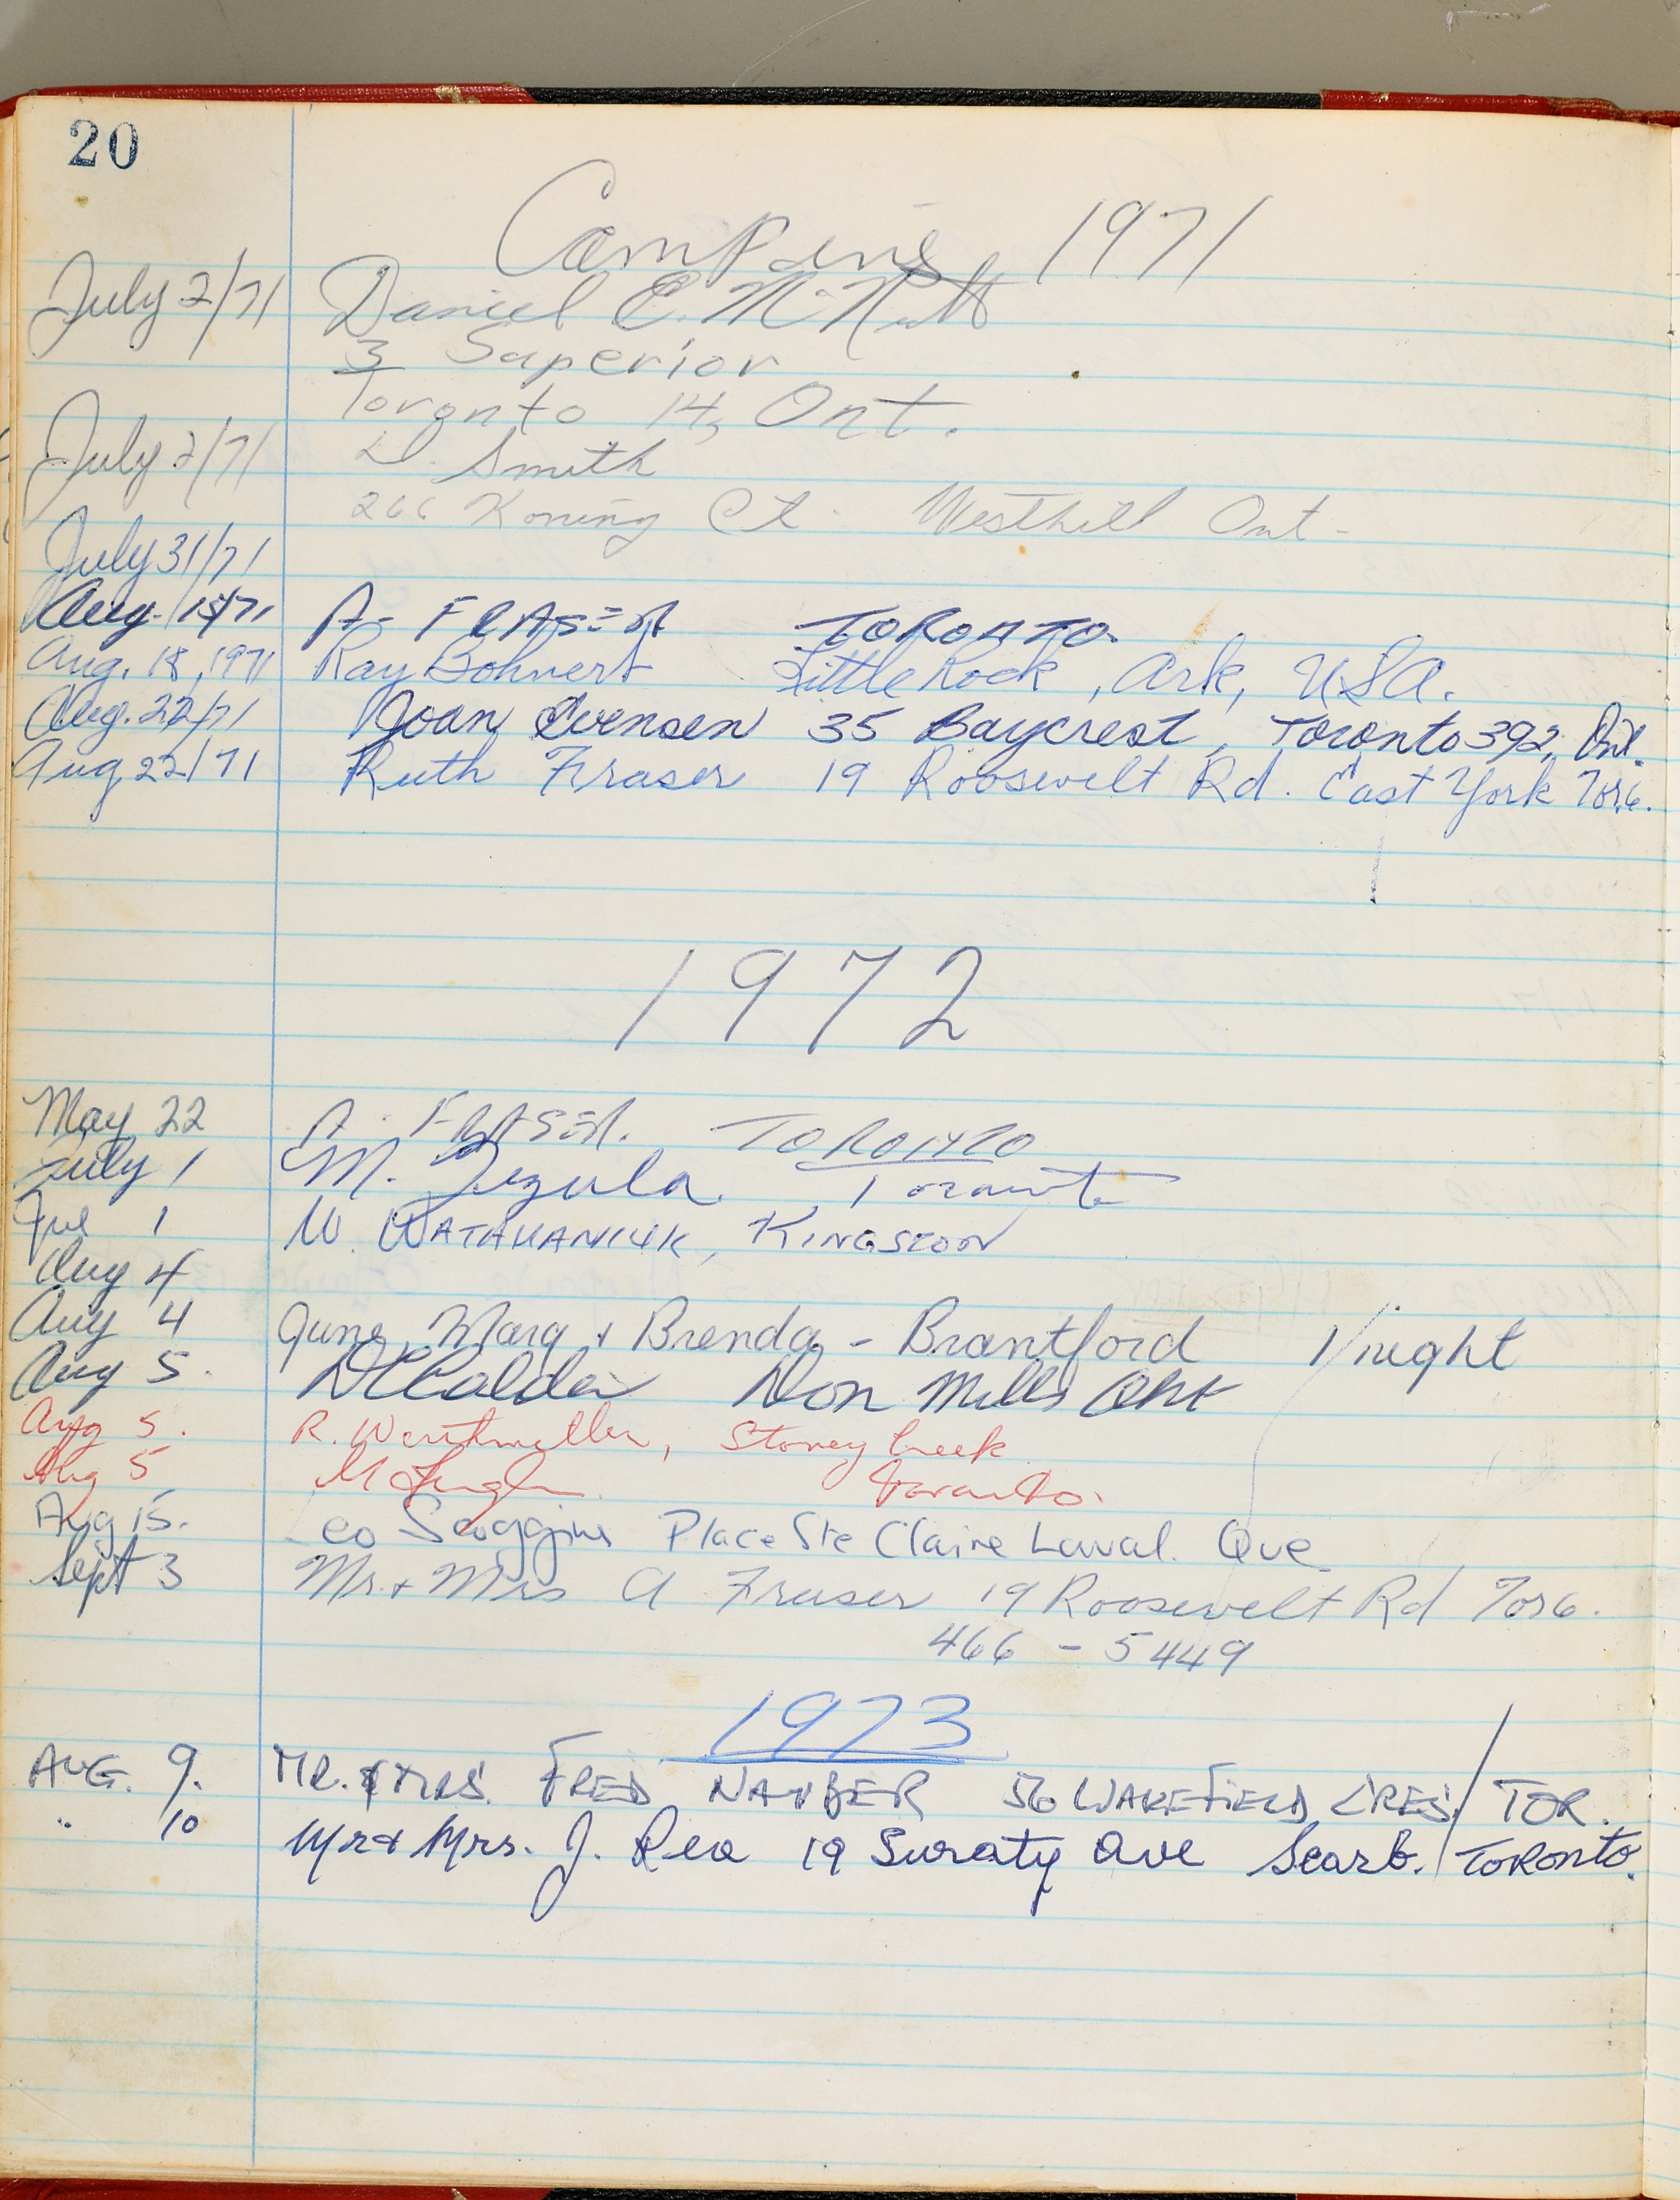 20
Camping 1971
July 2/71 Daniel E. McNutt
3 Superior
Toronto 14, Ont.
July 2/71 D. Smith
266 Koning Ct. Westhill Ont-
July 31/71
Aug. 15/71 A- FRASER TORONTO.
Aug. 18, 1971 Ray Bohnert Little Rock, Ark, USA.
Aug. 22/71 Joan Evensen 35 Baycrest, Toronto 392, Ont.
Aug 22/71 Ruth Fraser 19 Roosevelt Rd. East York Tor 6.
1972
May 22 A. FRASER. TORONTO
July 1 M. Toronto
Jul 1 W. WATAMANIUK, KINGSTON
Aug 4
Aug 4 June, Marg + Brenda - Brantford 1/night
Aug 5. Don Mills Ont
Aug 5. R. Werthmuller, Stoney Creek
Aug 5 M Toronto.
Aug 15. Scoggins Place Ste Claire Laval. Que
Sept 3 Mr. + Mrs A Fraser 19 Roosevelt Rd Tor 6.
466 - 5449
1973
AUG. 9. MR. & MRS. FRED 56 WAKEFIELD CRES / TOR.
" 10 Mr & Mrs. J. Rea 19 Ave Scarb. / TORONTO.